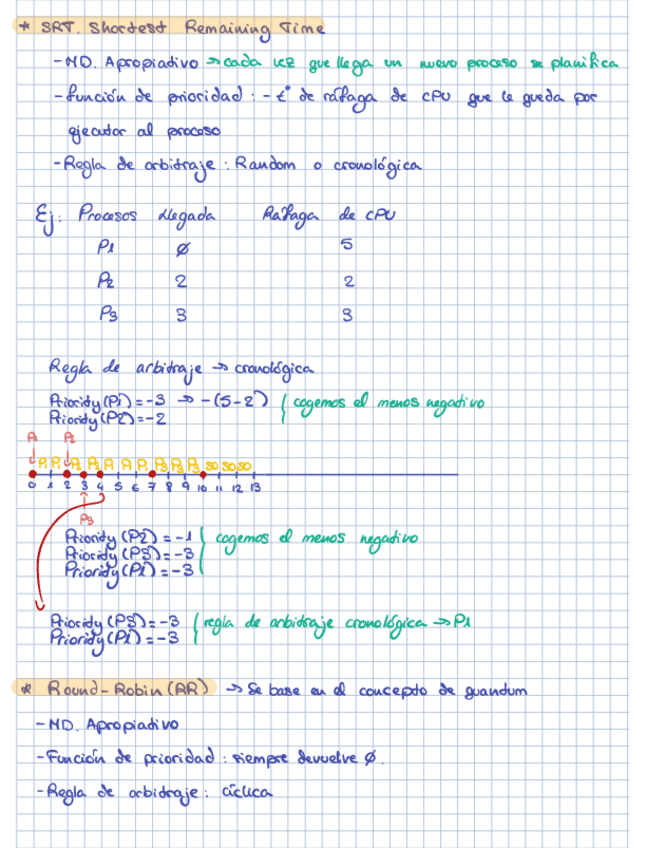 * SRT. Shortest Remaining Time
- MD. Apropiativo → cada vez que llega un nuevo proceso se planifica
- función de prioridad : - tº de ráfaga de CPU que le queda por
ejecutar al proceso
- Regla de arbitraje : Random o cronológica
Ej: Procesos Llegada Ráfaga de CPU
P1 0 5
P2 2 2
P3 3 3
Regla de arbitraje → cronológica
Priority(P1) = -3 → -(5-2) cogemos el menos negativo
Priority(P2) = -2
P1 P2
P1 P1 P2 P2 P1 P1 P1 P3 P3 P3 SO SO SO
0 1 2 3 4 5 6 7 8 9 10 11 12 13
P3
Priority (P2) = -1 cogemos el menos negativo
Priority (P3) = -3
Priority (P1) = -3
Priority (P3) = -3 regla de arbitraje cronológica → P1
Priority (P1) = -3
* Round-Robin (RR) → Se basa en el concepto de quandum
- MD. Apropiativo
- Función de prioridad : siempre devuelve 0.
- Regla de arbitraje : cíclica